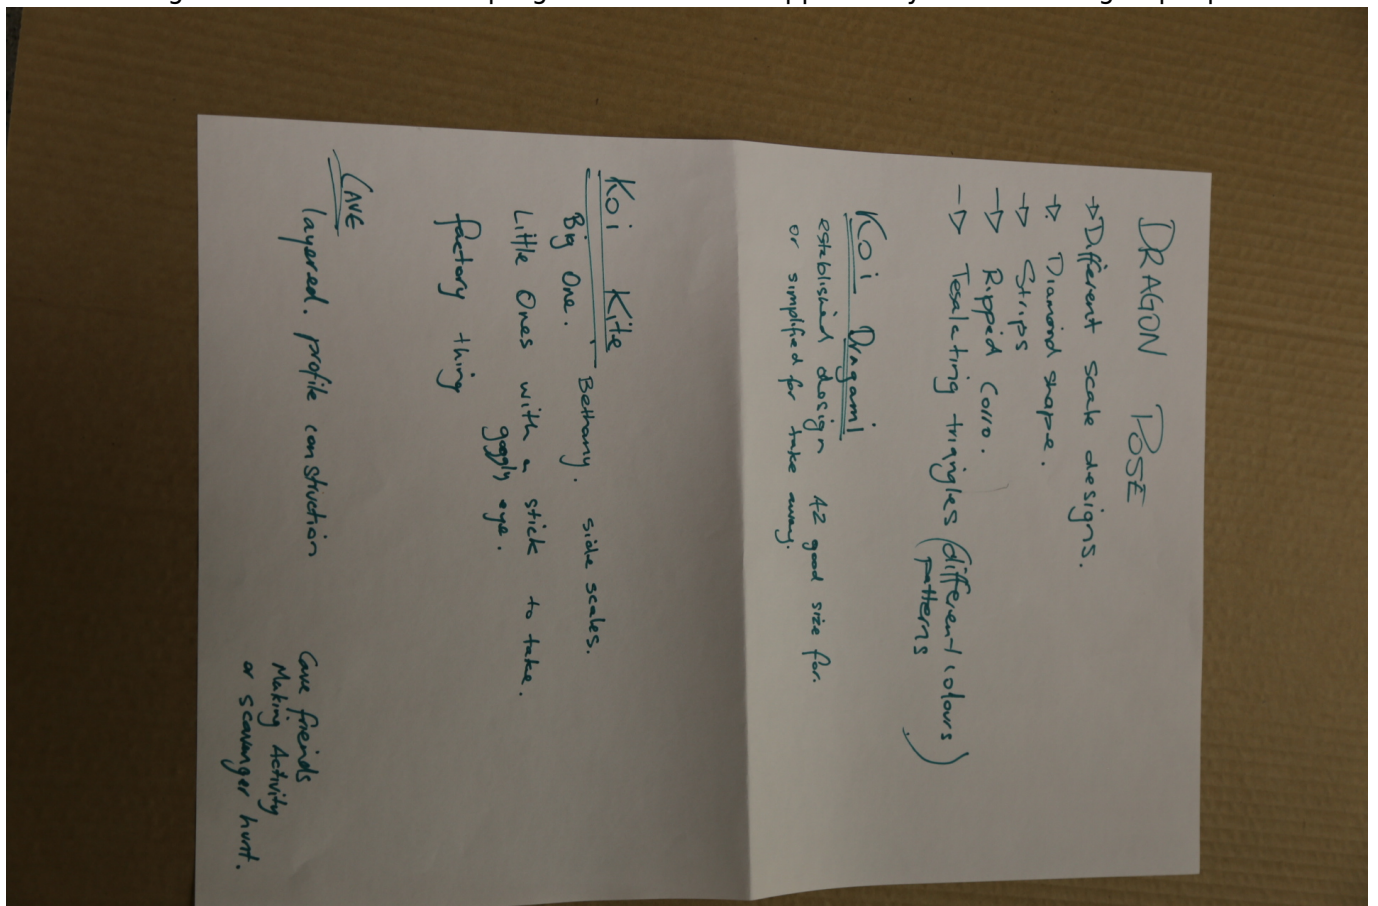 DRAGON POSE
→ Different scale designs.
→ Diamond shape.
→ Strips
→ Ripped Corro.
→ Tesalating triangles (different colours
patterns)
Koi Origami
established design A2 good size for.
or simplified for take away.
Koi Kite
Big One. Bethany. side scales.
Little Ones with a stick to take.
goggly eye.
factory thing
CAVE
layered. profile constrction
Cave friends
Making Activity
or scavanger hunt.